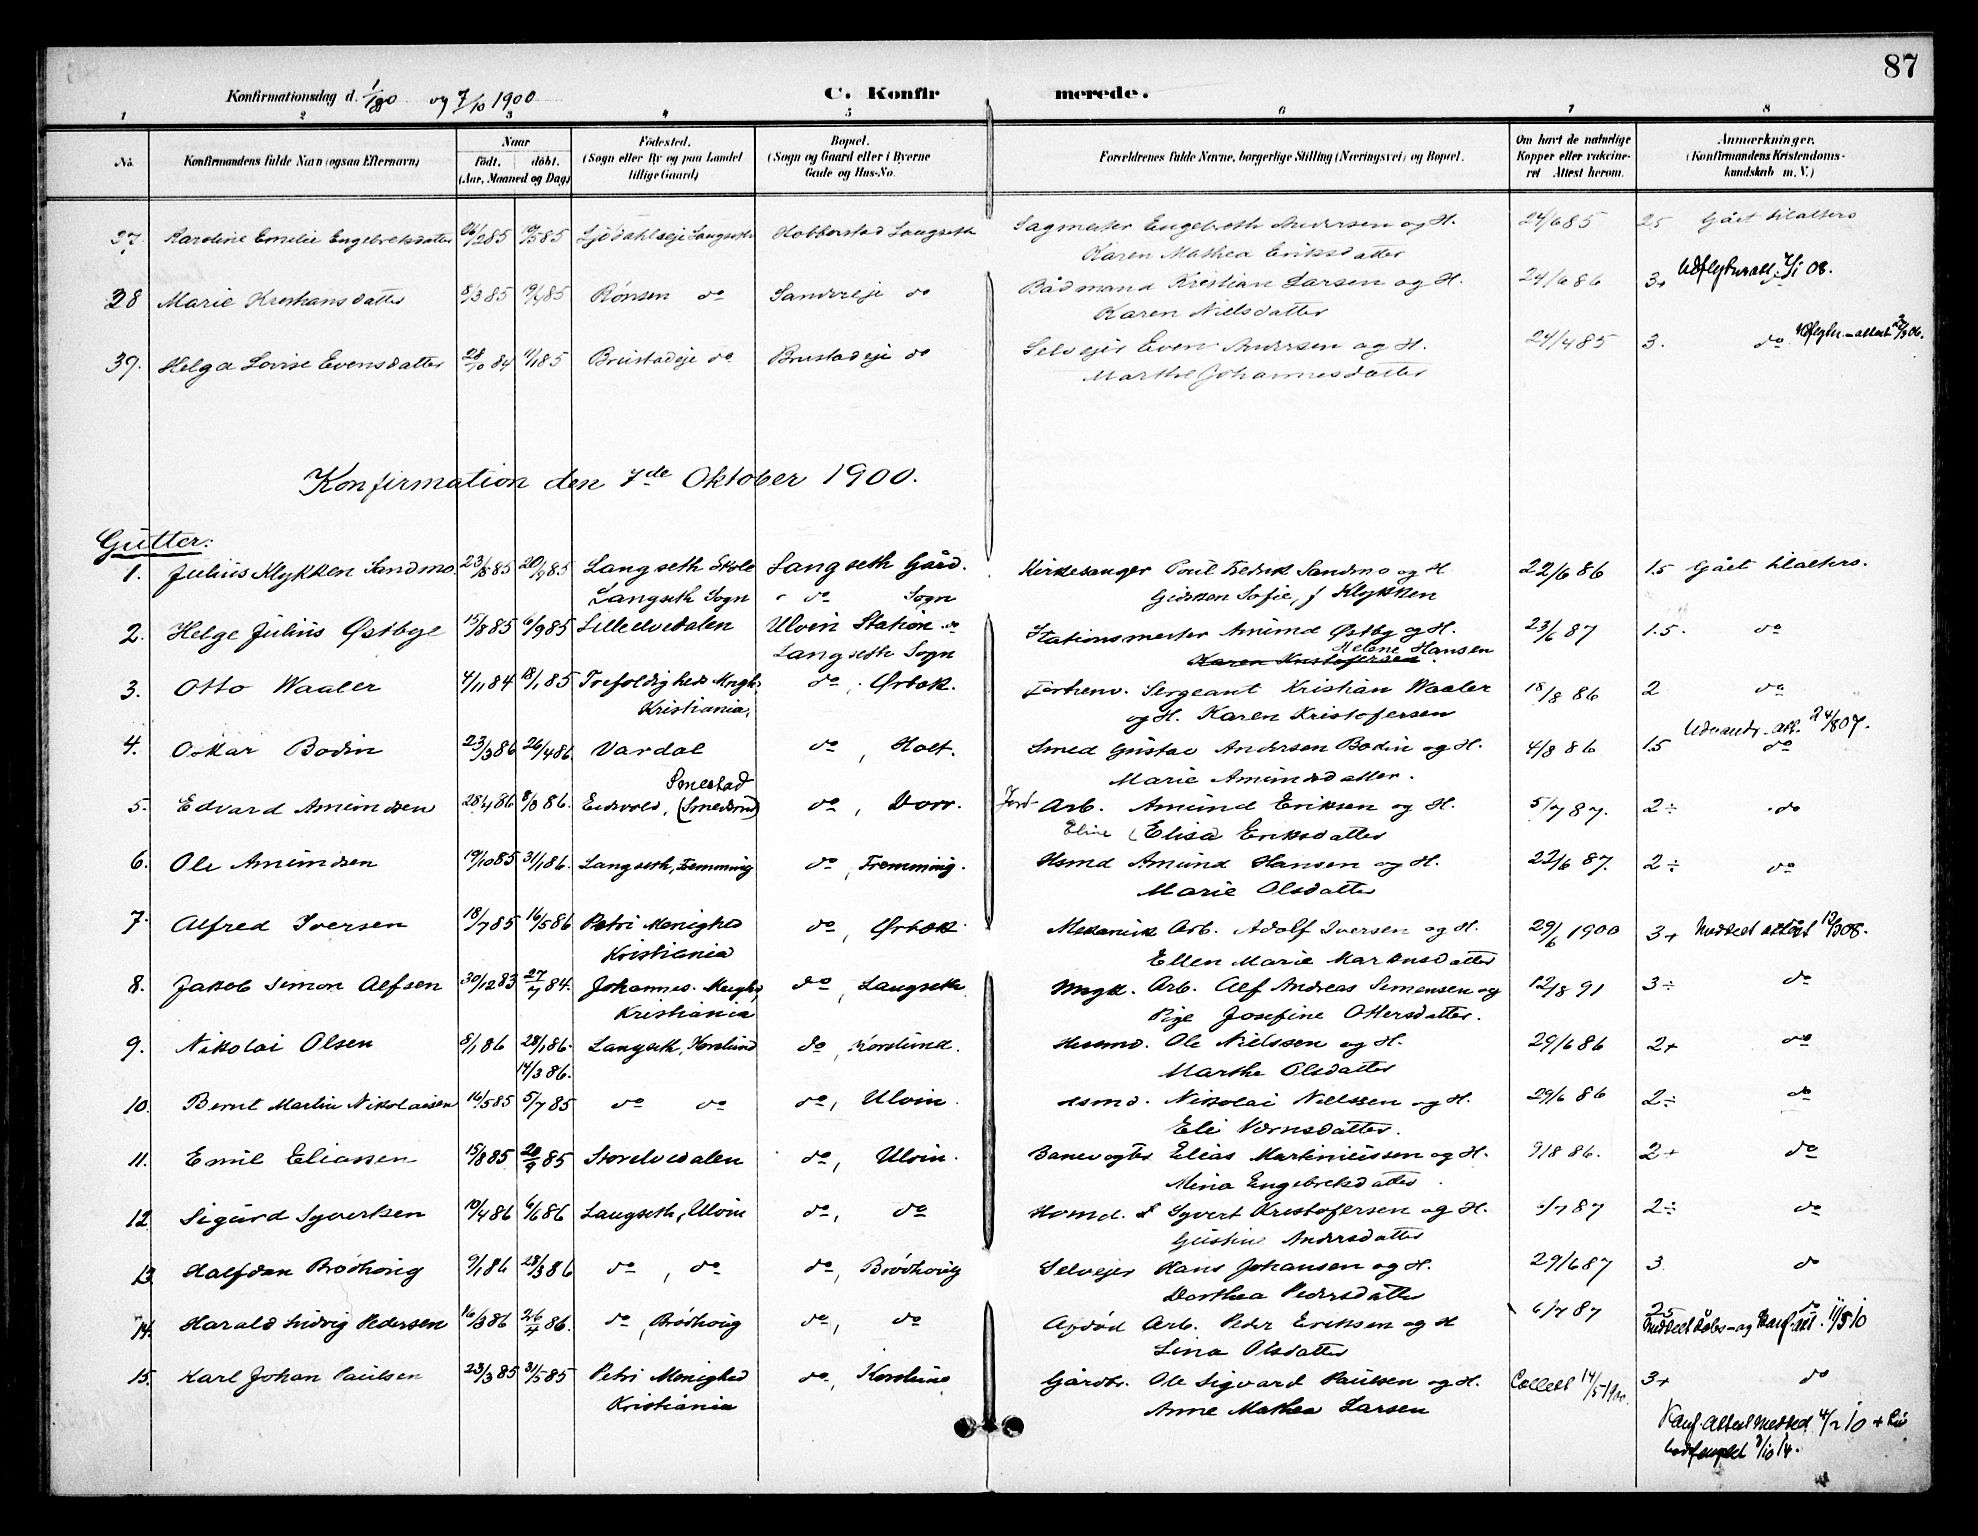 87
Konfirmationsdag d. 1/7 00 og 7/10 1900
C. Konfirmerede.
1 2 3 4 5 6 7 8
No. Konfirmandens fulde Navn (ogsaa Efternavn) Naar födt. döbt. (Aar, Maaned og Dag) Födested. (Sogn eller By og paa Landet tillige Gaard) Bopæl. (Sogn og Gaard eller i Byerne Gade og Hus-No. Forældrenes fulde Navne, borgerlige Stilling (Næringsvei) og Bopæl. Om havt de naturlige Kopper eller vakcineret Attest herom. Anmærkninger. (Konfirmandens Kristendomskundskab m. V.)
37. Karoline Emelie Engebretsdatter Langseth Langseth Sagmester Engebreth Andersen og H. 24/6 85 25 Gået tilalters
Karen Mathea Eriksdatter
38 Marie Kristiansdatter 8/3 85 Rönsen do Sandereje do Bådmand Kristian Larsen og H. 24/6 86 3+ 08.
Karen Nielsdatter
39. Helga Lovise Evensdatter 28/10 84 1/1 85 Brustadeje do Brustadeje do Selvejer Even Andersen og H. 24/4 85 3. do
Marthe Johannesdatter
Konfirmation den 7de Oktober 1900.
Gutter:
1. Julius Klykken Sandmo 20/9 85 Langseth Skole Langseth Gård. Kirkesanger Poul Fredrik Sandmo og H 22/6 86 1.5 Gået tilalters.
Langseth Sogn do Sogn Gidsken Sofie, f Klykken
2. Helge Julius Østbye 15/8 85 6/9 85 Lilleelvedalen Ulvin Station do Stationsmester Amund Østby og H. 23/6 87 1.5. do
Langseth Sogn Karen Kristofersen Helene Hansen
3. Otto Waaler 4/11 84 18/1 85 Trefoldigheds Mnghd. do, Ørbæk. Forhenv. Sergeant Kristian Waaler 18/8 86 2 do
Kristiania, og H. Karen Kristofersen
4. Oskar Bodin 23/3 86 26/4 86 Vardal do, Holt. Smed Gustav Andersen Bodin og H. 4/8 86 1.5 Udvandr. att. 24/8 07. do
Marie Amundsdatter.
5. Edvard Amundsen 28/4 86 Eidsvold, Smestad do, Dorr. Arb. Amund Eriksen og H. 5/7 87. 2÷ do
Eline (Elisa Eriksdatter
6. Ole Amundsen 19/10 85 31/1 86. Langseth, Fremming do, Fremming. Hsmd Amund Hansen og H. 22/6 87. 2÷ do
Marie Olsdatter
7. Alfred Iversen 18/7 85 16/5 86 Petri Menighed do, Ørbæk. Mekanisk Arb. Adolf Iversen og H. 29/6 1900 3+ Meddelt attest
Kristiania Ellen Marie Martinsdatter
8. Jakob Simon Alfsen 30/12 83 27/7 84. Johannes. Menghd, do, Langseth Ungk. Arb. Alf Andreas Simensen og 12/8 91 3÷ do
Kristiania Pige Josefine Ottersdatter.
9. Nikolai Olsen 8/1 86 28/1 86. Langseth, Korslund do, Korslund. Husmd. Ole Nielssen og H. 29/6 86 2+ do
14/3 86. Marthe Olsdatter
10. Bernt Martin Nikolaisen 16/5 85 5/7 85 do do do, Ulvin. Hsmd. Nikolai Nielssen og H. 29/6 86 2÷ do
Eli
11. Emil Eliassen 15/8 85 20/9 85 Storelvedalen do, Ulvin. Banevogter Elias Martiniussen og H. 9/8 86. 2+ do
Mina Engebretsdatter.
12 Sigurd Syvertsen 10/4 86 6/6 86 Langseth, Ulvin do, do Hsmd. Syvert Kristofersen og H. 6/7 87 2÷ do
Gustine Andersdatter
13. Halfdan Brødhovig 9/1 86 28/3 86 do, do do, Brødhovig Selvejer Hans Johansen og H. 29/6 87 3 do
Dorthea Pedersdatter
14. Harald Ludvig Pedersen 16/3 86 26/4 86. do, Brødhovig do, do Afdød Arb. Peder Eriksen og H 6/7 87 2.5 do
Lina Olsdatter Meddelt Dåbs- og Konf. att. 11/5 10
15. Karl Johan Paulsen 23/3 85 31/5 85 Petri Menighed do, Korslund Gårdbr. Ole Sigvard Paulsen og H. Collett 14/5 1900. 3+ do
Kristiania Anne Mathea Larsen
Konf. Attest Meddelt 4/2 10